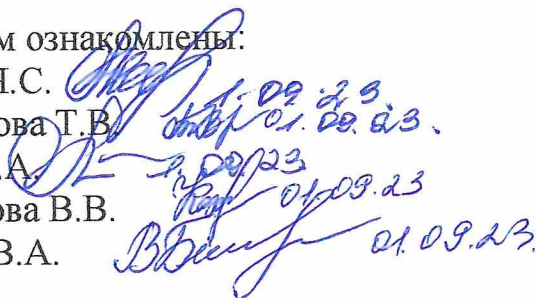 м ознакомлены:
И.С. 1.09.23.
ова Т.В. 01.09.23.
.А. 1.09.23
ова В.В. 01.09.23
В.А. 01.09.23.